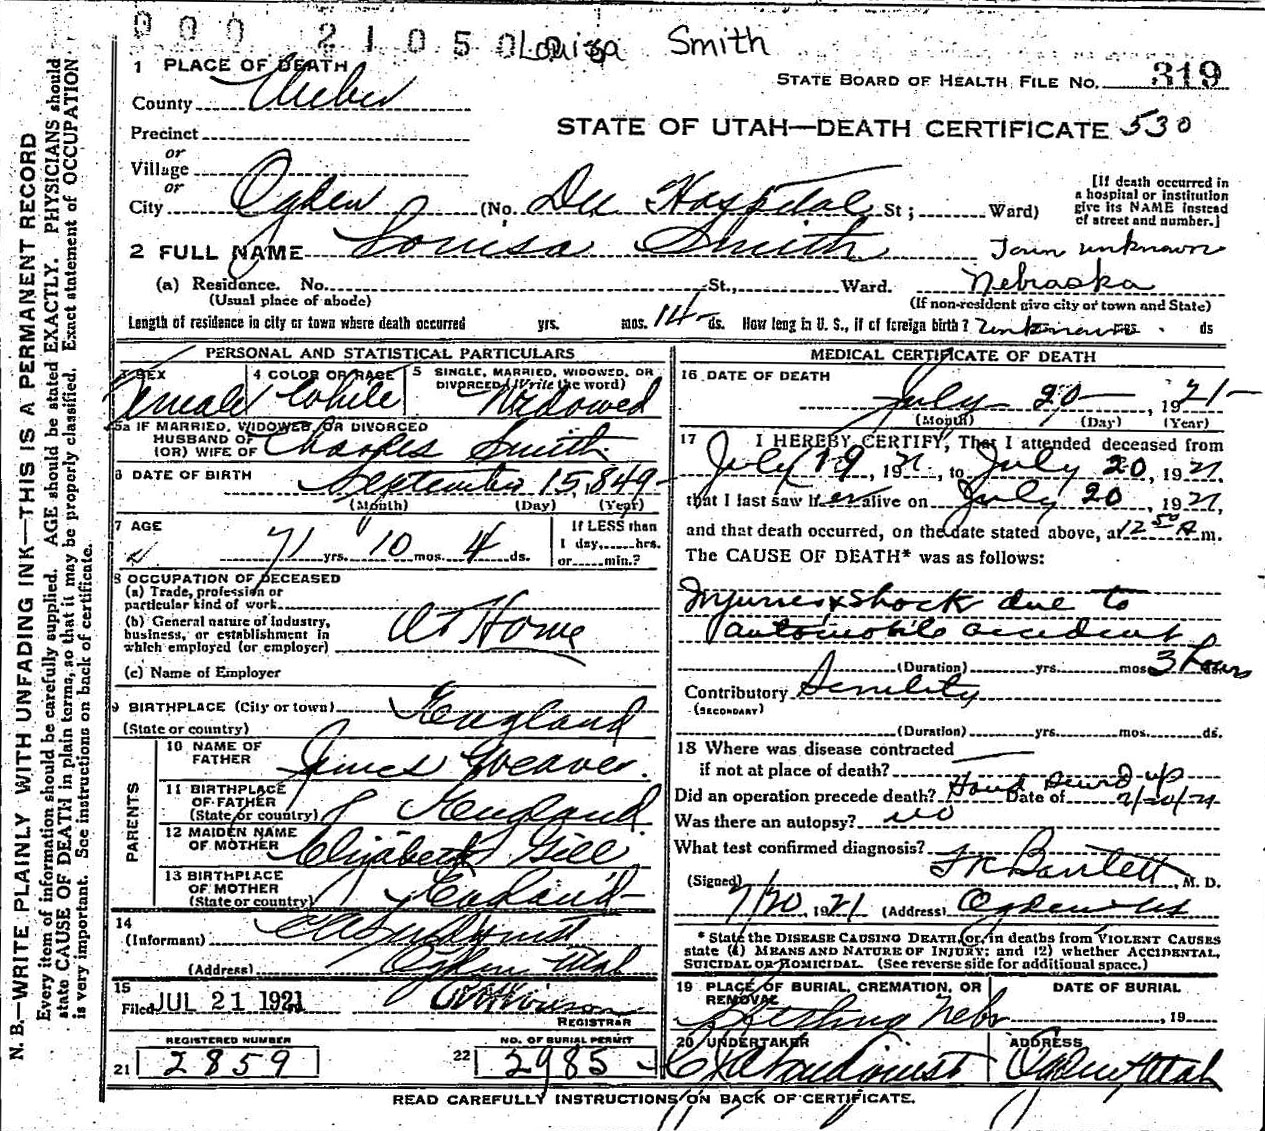 000 21050 Louisa Smith
1 PLACE OF DEATH
STATE BOARD OF HEALTH FILE NO. 319
County Weber
Precinct
STATE OF UTAH—DEATH CERTIFICATE 530
or
Village
or
City Ogden (No. Dee Hospital St; Ward)
[If death occurred in a hospital or institution give its NAME instead of street and number.]
2 FULL NAME Louisa Smith
Town unknown
(a) Residence. No. St., Ward. Nebraska
(Usual place of abode) (If non-resident give city or town and State)
Length of residence in city or town where death occurred yrs. mos. 14 ds. How long in U. S., if of foreign birth? unknown ds
PERSONAL AND STATISTICAL PARTICULARS
3 SEX Female
4 COLOR OR RACE White
5 SINGLE, MARRIED, WIDOWED, OR DIVORCED (Write the word) Widowed
5a IF MARRIED, WIDOWED, OR DIVORCED
HUSBAND OF
(OR) WIFE OF Charles Smith
6 DATE OF BIRTH September 15, 1849
(Month) (Day) (Year)
7 AGE 71 yrs. 10 mos. 4 ds.
If LESS than
1 day,......hrs.
or......min.?
8 OCCUPATION OF DECEASED
(a) Trade, profession or
particular kind of work
(b) General nature of industry,
business, or establishment in
which employed (or employer) At Home
(c) Name of Employer
9 BIRTHPLACE (City or town)
(State or country) England
PARENTS
10 NAME OF
FATHER James Weaver
11 BIRTHPLACE
OF FATHER
(State or country) England
12 MAIDEN NAME
OF MOTHER Elizabeth Gill
13 BIRTHPLACE
OF MOTHER
(State or country) England
14
(Informant)
(Address) Ogden Utah
15
Filed JUL 21 1921
REGISTRAR
REGISTERED NUMBER
21 2859
NO. OF BURIAL PERMIT
22 2985
MEDICAL CERTIFICATE OF DEATH
16 DATE OF DEATH
July 20, 1921
(Month) (Day) (Year)
17 I HEREBY CERTIFY, That I attended deceased from
July 19, 1921, to July 20, 1921
that I last saw her alive on July 20, 1921,
and that death occurred, on the date stated above, at 12 50 A m.
The CAUSE OF DEATH* was as follows:
Injuries & Shock due to
automobile accident
(Duration) yrs. mos. 3 hours
Contributory Senility
(SECONDARY)
(Duration) yrs. mos. ds.
18 Where was disease contracted
if not at place of death?
Did an operation precede death? Hand Sewed up Date of 7/20/21
Was there an autopsy? no
What test confirmed diagnosis?
(Signed) Bartlett, M. D.
7/20 1921 (Address) Ogden
* State the DISEASE CAUSING DEATH, or, in deaths from VIOLENT CAUSES
state (1) MEANS AND NATURE OF INJURY; and (2) whether ACCIDENTAL,
SUICIDAL or HOMICIDAL. (See reverse side for additional space.)
19 PLACE OF BURIAL, CREMATION, OR REMOVAL
DATE OF BURIAL
Sterling Nebr , 19
20 UNDERTAKER
ADDRESS
Ogden Utah
READ CAREFULLY INSTRUCTIONS ON BACK OF CERTIFICATE.
N. B.—WRITE PLAINLY WITH UNFADING INK—THIS IS A PERMANENT RECORD
Every item of information should be carefully supplied. AGE should be stated EXACTLY. PHYSICIANS should
state CAUSE OF DEATH in plain terms, so that it may be properly classified. Exact statement of OCCUPATION
is very important. See instructions on back of certificate.